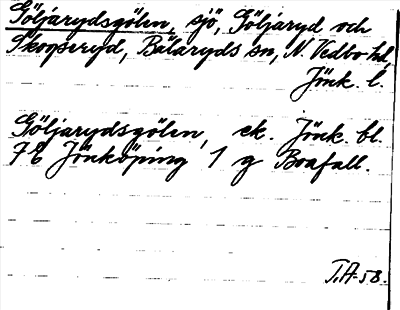 Göljarydsgölen, sjö, Göljaryd och
Skogseryd, Bälaryds sn, N. Vedbo hd,
Jönk. l.
Göljarydsgölen, ek. Jönk. bl.
7 E Jönköping 1 g Boafall.
T.A-58.